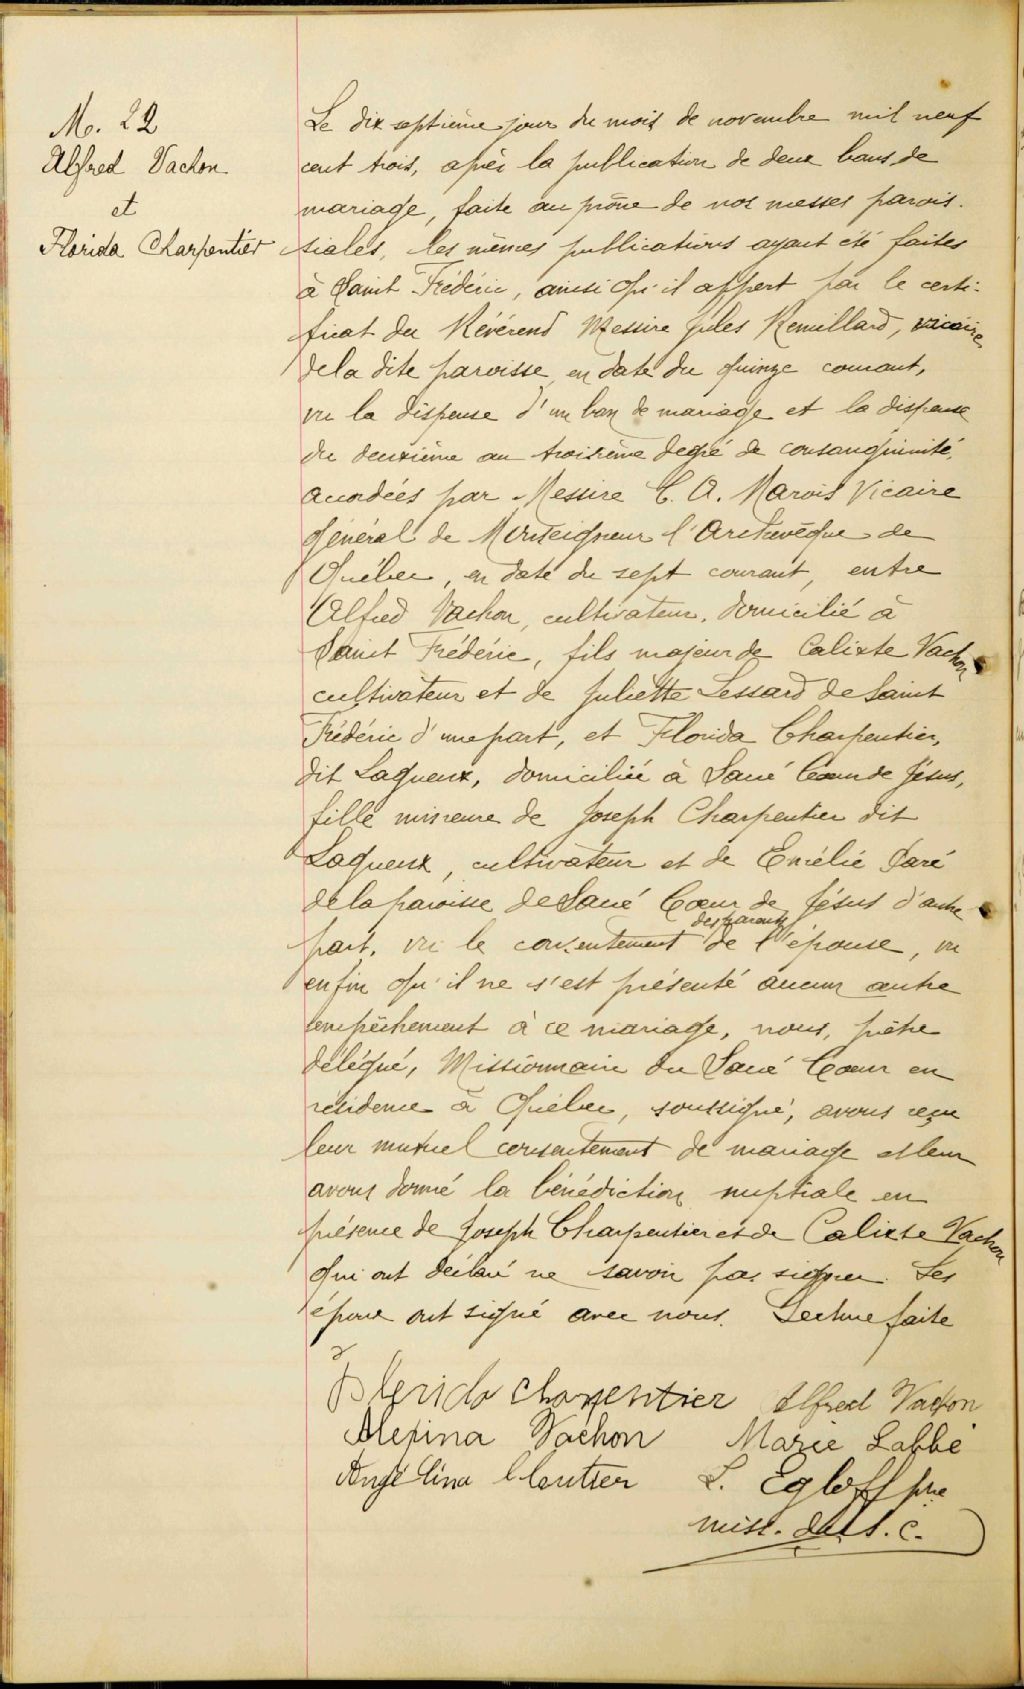 M. 22
Alfred Vachon
et
Florida Charpentier
Le dix septième jour du mois de novembre mil neuf
cent trois, après la publication de deux bans de
mariage, faite au prône de nos messes parois-
siales, les mêmes publications ayant été faites
à Saint Frédéric, ainsi qu'il appert par le certi-
ficat du Révérend Messire Jules Remillard, vicaire
de la dite paroisse, en date du quinze courant,
vu la dispense d'un ban de mariage et la dispense
du deuxième au troisième degré de consanguinité,
accordées par Messire C. A. Marois Vicaire
général de Monseigneur l'Archevêque de
Québec, en date du sept courant, entre
Alfred Vachon, cultivateur, domicilié à
Saint Frédéric, fils majeur de Calixte Vachon
cultivateur et de Juliette Lessard de Saint
Frédéric d'une part, et Florida Charpentier,
dit Laqueux, domiciliée à Sacré Cœur de Jésus,
fille mineure de Joseph Charpentier dit
Laqueux, cultivateur et de Emélie Paré
de la paroisse de Sacré Cœur de Jésus d'autre
des parents
part, vu le consentement de l'épouse, vu
enfin qu'il ne s'est présenté aucun autre
empêchement à ce mariage, nous, prêtre
délégué, Missionnaire du Sacré Cœur en
résidence à Québec, soussigné, avons reçu
leur mutuel consentement de mariage et leur
avons donné la bénédiction nuptiale en
présence de Joseph Charpentier et de Calixte Vachon
qui ont déclaré ne savoir pas signer. Les
époux ont signé avec nous. Lecture faite
Florida Charpentier Alfred Vachon
Alexina Vachon Marie Labbé
Angélina Cloutier L. Egloff ptre
miss. du S. C.